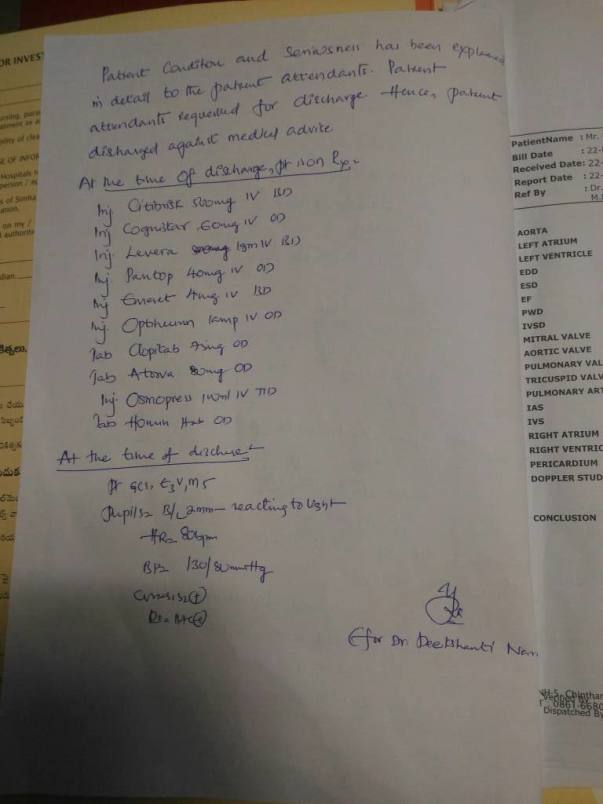 Patient Condition and Seriousness has been explained
in detail to the patient attendants. Patient
attendants requested for discharge. Hence, patient
discharged against medical advise
At the time of discharge, pt is on Rx:-
Inj 500mg IV BD
Inj Cognistar 60mg IV OD
Inj Levera 1gm IV BD
Inj. Pantop 40mg IV OD
Inj Emeset 4mg IV BD
Inj. Optineuron 1amp IV OD
Tab Clopitab 75mg OD
Tab Atorva 80mg OD
Inj Osmopress IV TID
Tab OD
At the time of discharge:-
Pt GCS, E3V1M5
Pupils= B/L 2mm reacting to light
HR= 80bpm
BP= 130/80mmHg
CVS= S1S2(+)
RS=
(for Dr. Deekshanti
OR INVEST
PatientName : Mr.
Bill Date : 22-
Received Date: 22-
Report Date : 22-
Ref By : Dr.
AORTA
LEFT ATRIUM
LEFT VENTRICLE
EDD
ESD
EF
PWD
IVSD
MITRAL VALVE
AORTIC VALVE
PULMONARY VAL
TRICUSPID VALV
PULMONARY ART
IAS
IVS
RIGHT ATRIUM
RIGHT VENTRIC
PERICARDIUM
DOPPLER STUD
CONCLUSION
Dispatched By